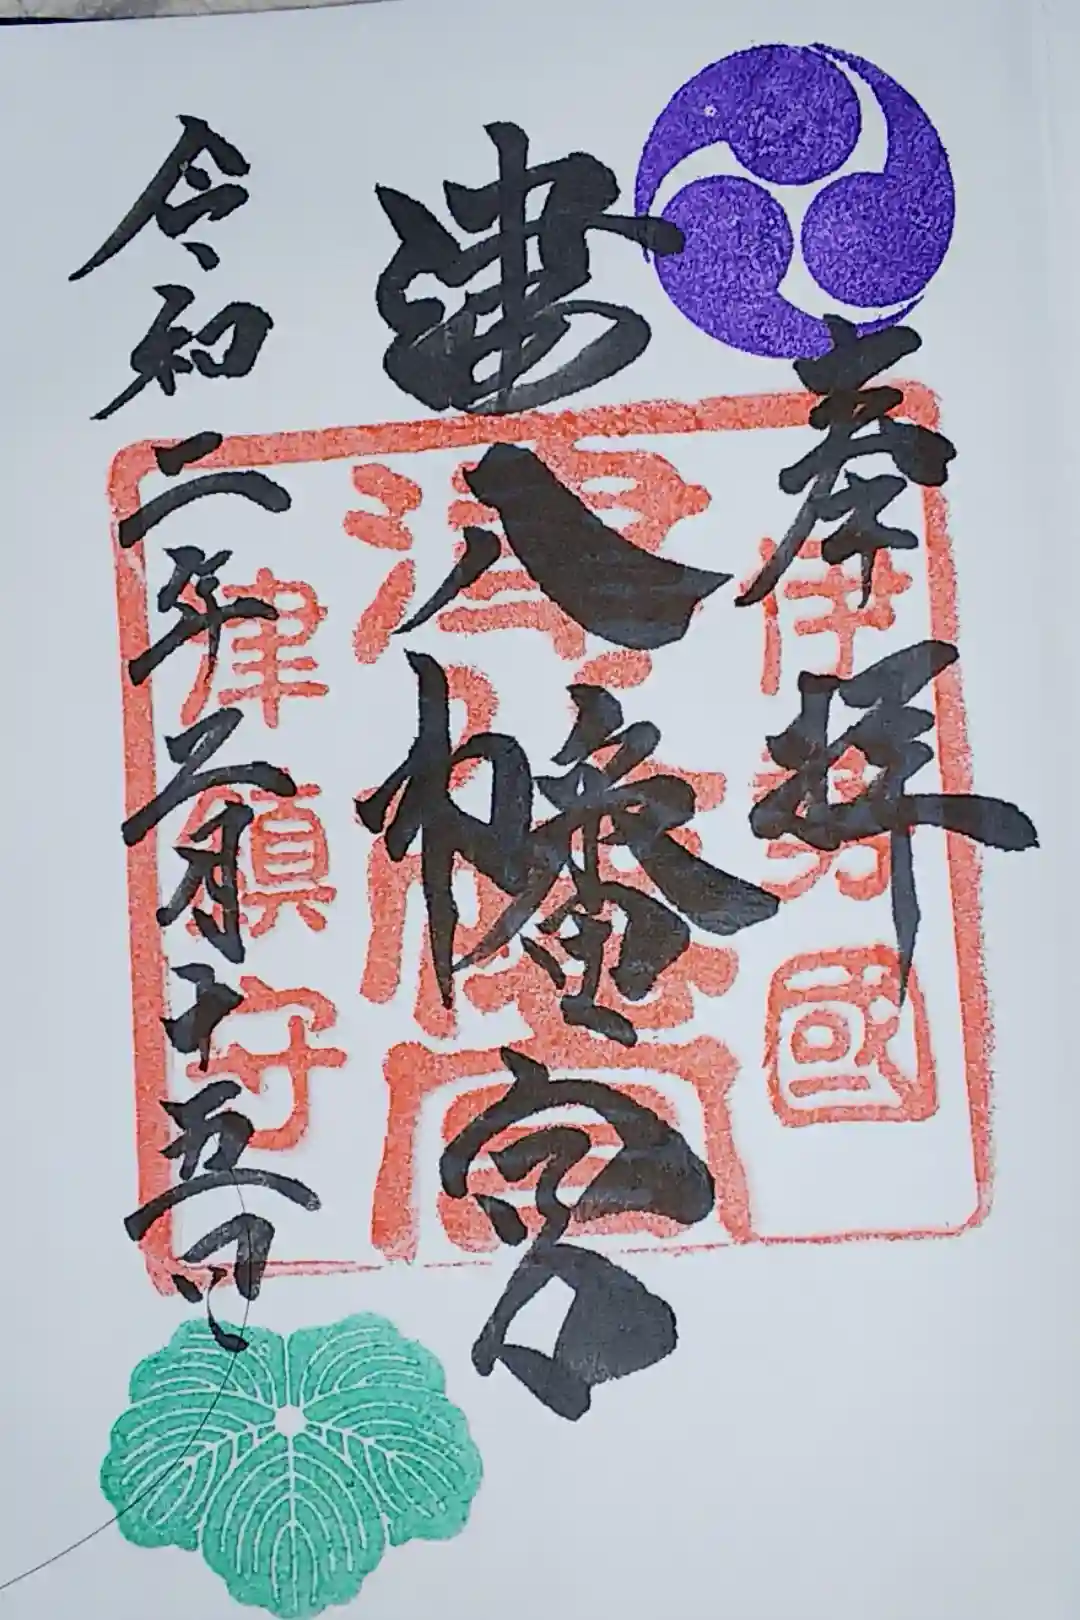 奉拝
伊勢國
津八幡宮
津八幡宮
令和二年二月十五日
津鎮守